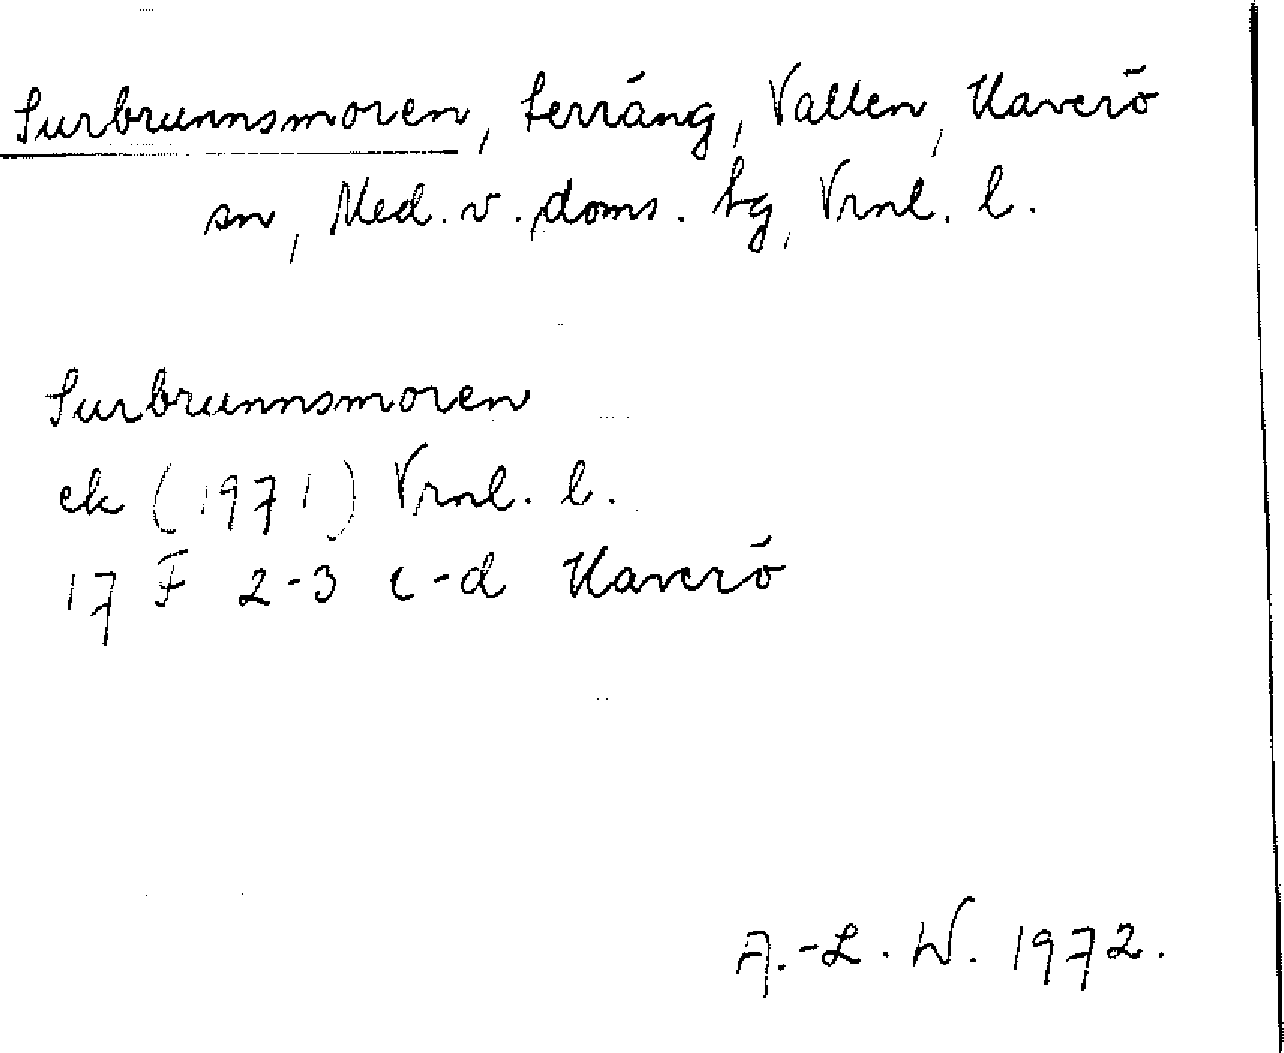 Surbrunnsmoren, terräng, Vallen, Haverö
sn, Med. v. doms. tg, Vrnl. l.
Surbrunnsmoren
ek (1971) Vrnl. l.
17 F 2-3 c-d Haverö
A.-L. W. 1972.